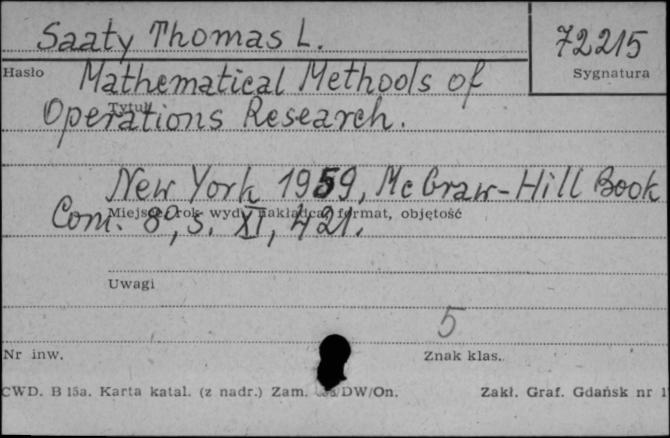 Saaty Thomas L.
72215
Hasło
Sygnatura
Mathematical Methods of
Tytuł
Operations Research.
New York 1959, Mc Graw-Hill Book
Miejsce, rok wyd., nakładca, format, objętość
Com. 8°, s. XI, 421.
Uwagi
5
Nr inw.
Znak klas.
CWD. B 15a. Karta katal. (z nadr.) Zam. /DW/On.
Zakł. Graf. Gdańsk nr